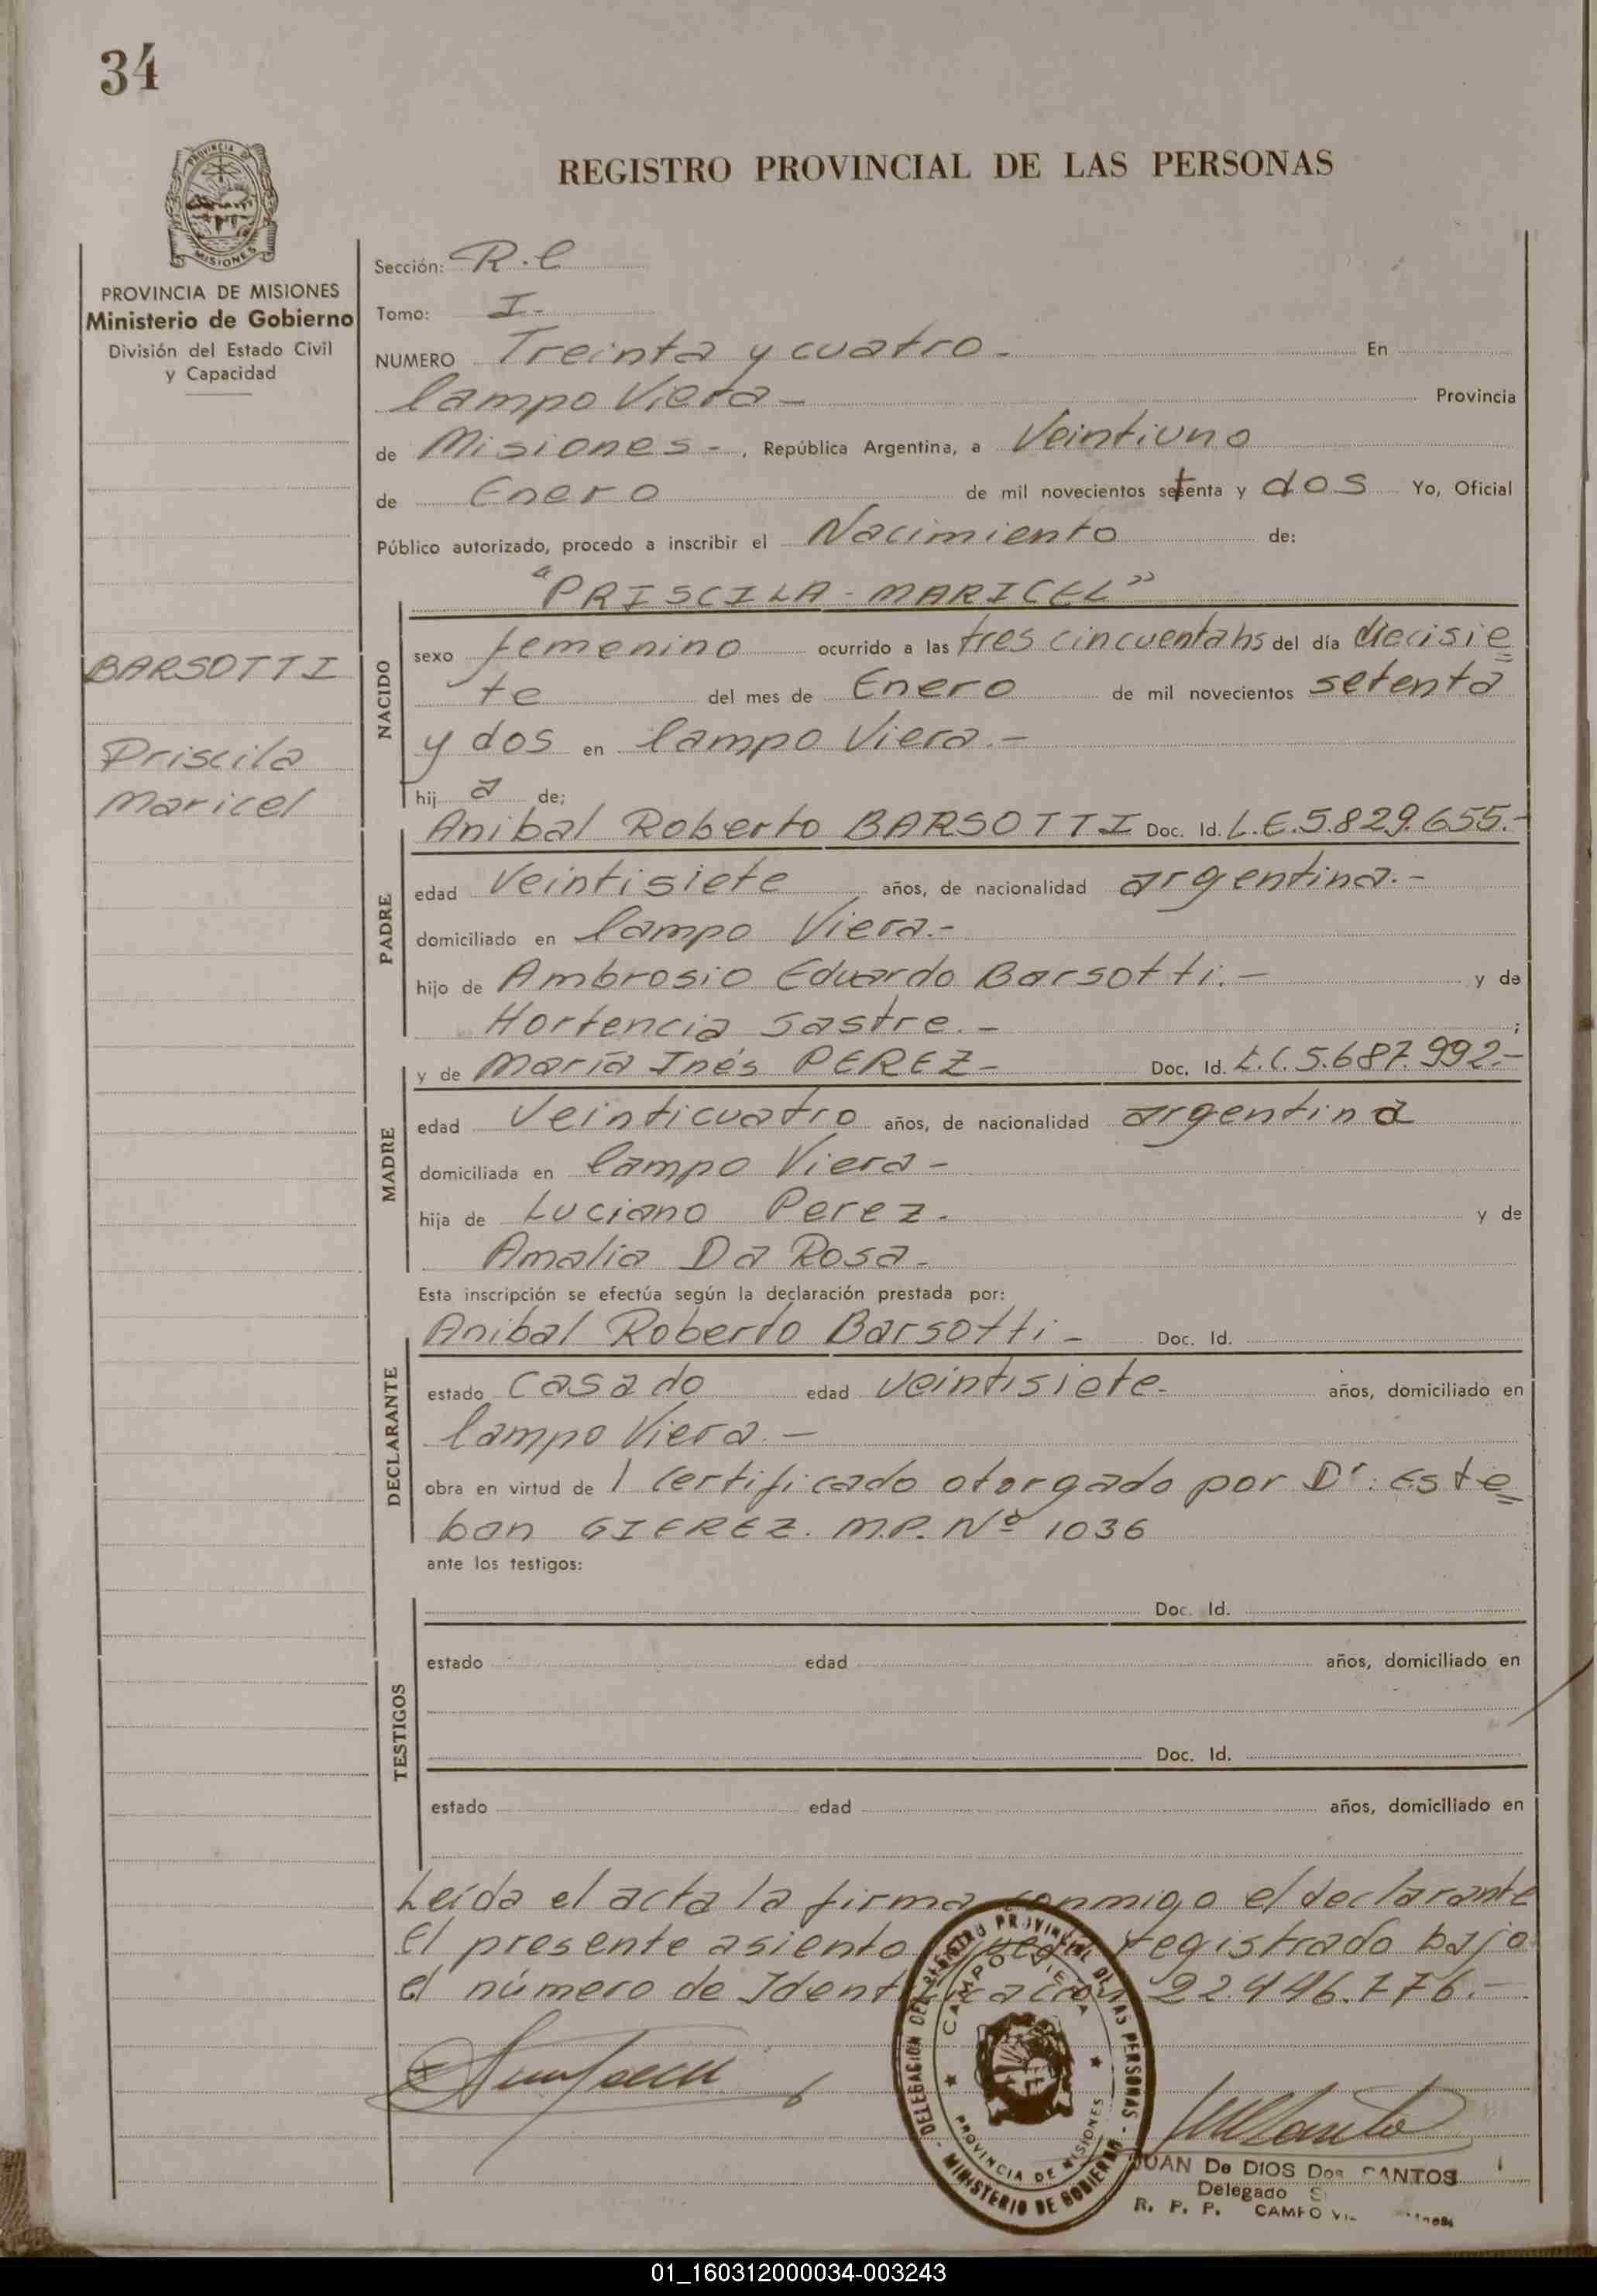 34
REGISTRO PROVINCIAL DE LAS PERSONAS
PROVINCIA DE MISIONES
Ministerio de Gobierno
División del Estado Civil
y Capacidad
BARSOTTI
Priscila
Maricel
Sección: R.C
Tomo: I.-
NUMERO Treinta y cuatro.- En
Campo Viera- Provincia
de Misiones-, República Argentina, a Veintiuno
de Enero de mil novecientos setenta y dos Yo, Oficial
Público autorizado, procedo a inscribir el Nacimiento de:
"PRISCILA-MARICEL"
NACIDO
sexo femenino ocurrido a las tres cincuentahs del día diecisie
te del mes de Enero de mil novecientos setenta
y dos en Campo Viera.-
hij a de:
Anibal Roberto BARSOTTI Doc. Id. L.E.5.829.655.-
PADRE
edad Veintisiete años, de nacionalidad argentina.-
domiciliado en Campo Viera.-
hijo de Ambrosio Eduardo Barsotti.- y de
Hortencia Sastre.- ;
y de María Inés PEREZ- Doc. Id. L.C.5.687.992.-
MADRE
edad Veinticuatro años, de nacionalidad argentina
domiciliada en Campo Viera-
hija de Luciano Perez. y de
Amalia Da Rosa.
Esta inscripción se efectúa según la declaración prestada por:
Anibal Roberto Barsotti- Doc. Id.
DECLARANTE
estado Casado edad veintisiete- años, domiciliado en
Campo Viera.-
obra en virtud de 1 Certificado otorgado por Dr: Este
ban GIEREZ. M.P. Nº 1036
ante los testigos:
TESTIGOS
Doc. Id.
estado edad años, domiciliado en
Doc. Id.
estado edad años, domiciliado en
Leída el acta la firma conmigo el declarante
El presente asiento queda registrado bajo
el número de Identificación 22.446.776.-
DELEGACION DEL REGISTRO PROVINCIAL DE LAS PERSONAS
MINISTERIO DE GOBIERNO
CAMPO VIERA
PROVINCIA DE MISIONES
JUAN De DIOS Dos SANTOS
Delegado
R. P. P. CAMPO
01_160312000034-003243